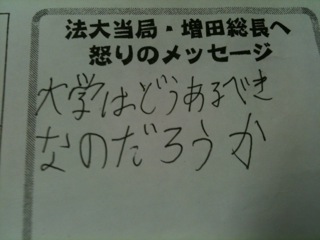 法大当局・増田総長へ
怒りのメッセージ
大学はどうあるべき
なのだろうか